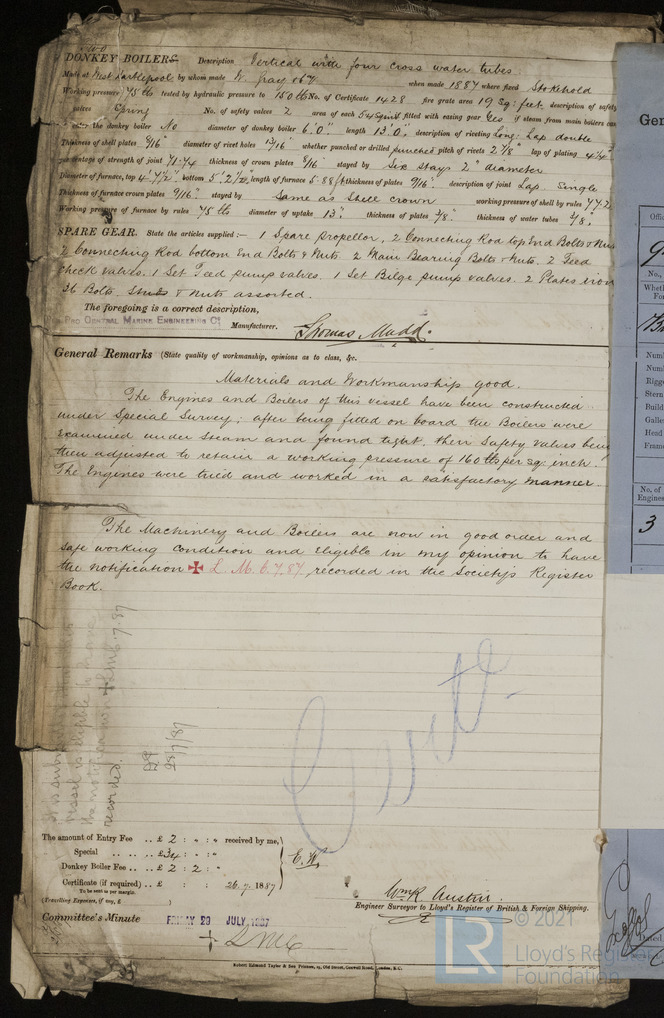 Two
DONKEY BOILERS. Description Vertical with four cross water tubes
Made at West Hartlepool by whom made W. Gray & Co. when made 1887 where fixed Stokehold
Working pressure 75 lb tested by hydraulic pressure to 150 lb No. of Certificate 1428 fire grate area 19 sq: feet. description of safety
valves Spring No. of safety valves 2 area of each fitted with easing gear Yes if steam from main boilers can
enter the donkey boiler No diameter of donkey boiler 6'.0" length 13'.0" description of riveting Long: Lap double
Thickness of shell plates 9/16" diameter of rivet holes 13/16" whether punched or drilled punched pitch of rivets 2 7/8" lap of plating 4 1/4"
percentage of strength of joint 71.74 thickness of crown plates 9/16" stayed by Six stays 2" diameter
Diameter of furnace, top 4'.7 1/2" bottom 5'.2 1/2" length of furnace 5.88 ft thickness of plates 9/16" description of joint Lap. Single
Thickness of furnace crown plates 9/16" stayed by Same as shell crown working pressure of shell by rules 77.2
Working pressure of furnace by rules 75 lb diameter of uptake 13" thickness of plates 3/8" thickness of water tubes 3/8"
SPARE GEAR. State the articles supplied:— 1 Spare propellor, 2 Connecting Rod top End Bolts & Nuts
2 Connecting Rod bottom End Bolts & Nuts 2 Main Bearing Bolts & Nuts. 2 Feed
check valves. 1 Set Feed pump valves. 1 Set Bilge pump valves. 2 Plates iron
36 Bolts. Studs & Nuts assorted.
The foregoing is a correct description,
PRO CENTRAL MARINE ENGINEERING CO Manufacturer. Thomas Mudd.
General Remarks (State quality of workmanship, opinions as to class, &c.
Materials and Workmanship good.
The Engines and Boilers of this vessel have been constructed
under Special Survey; after being fitted on board the Boilers were
examined under steam and found tight. their Safety Valves being
then adjusted to retain a working pressure of 160 lbs per sq: inch.
The Engines were tried and worked in a satisfactory manner.
The Machinery and Boilers are now in good order and
safe working condition and eligible in my opinion to have
the notification ✠ L. M. C. 7. 87, recorded in the Society's Register
Book.
vessel is eligible to have
the notification ✠ LMC. 7. 87
recorded.
28/7/87
The amount of Entry Fee .. £ 2 : " : " received by me,
Special .. .. .. £34 : " : "
Donkey Boiler Fee .. £ 2 : 2 : "
Certificate (if required) .. £ : : 26.7.1887
To be sent as per margin.
(Travelling Expenses, if any, £ )
Wm R Austin.
Engineer Surveyor to Lloyd's Register of British & Foreign Shipping.
Committee's Minute FRIDAY 29 JULY 1887
+ LMC
Robert Edmund Taylor & Son Printers, 19, Old Street, Goswell Road, London, E.C.
LR
© 2021
Lloyd's Register
Foundation
Gen
No.,
Stern
Head
No. of
Engines
3